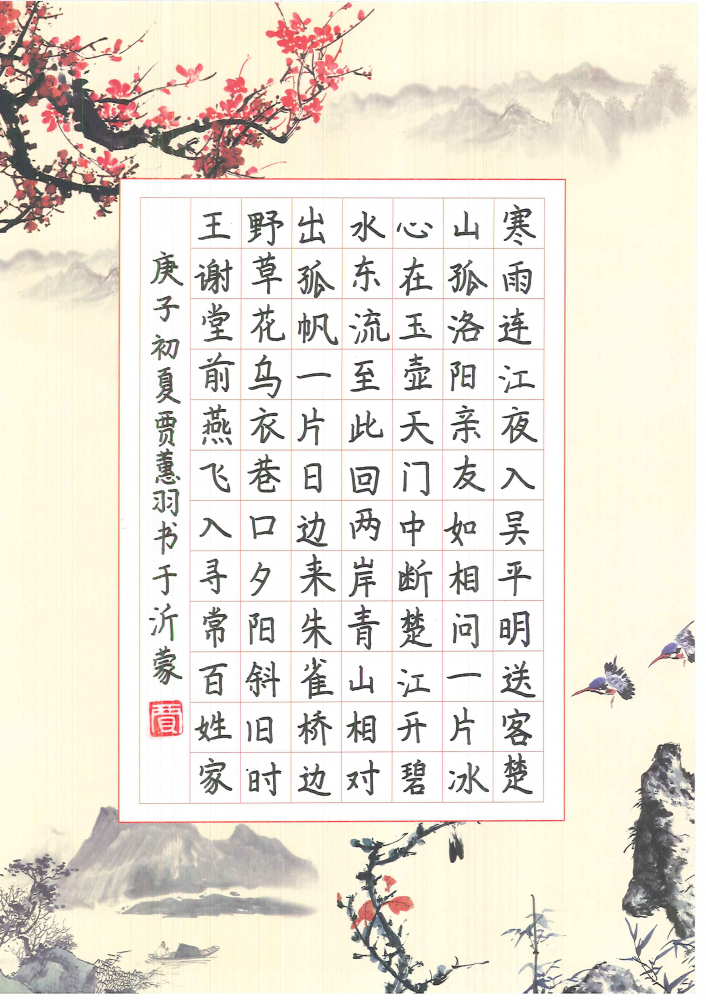 寒雨连江夜入吴平明送客楚
山孤洛阳亲友如相问一片冰
心在玉壶天门中断楚江开碧
水东流至此回两岸青山相对
出孤帆一片日边来朱雀桥边
野草花乌衣巷口夕阳斜旧时
王谢堂前燕飞入寻常百姓家
庚子初夏贾蕙羽书于沂蒙
賈